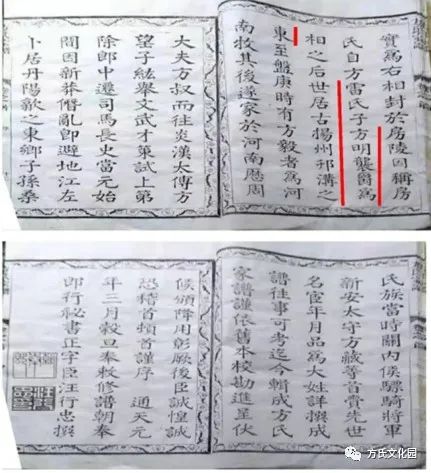 實為右相封於房陵因稱房
氏自方雷氏子方明襲爵為
相之后世居古揚州邗溝之
東至盤庚時有方毅者為河
南牧其後遂家於河南歷周
大夫方叔而往炎漢太傅方
望子紘舉文武才策試上第
除郎中遷司馬長史當元始
間因新莽僭亂即避地江左
卜居丹陽歙之東鄉子孫桑
氏族當時關內侯驃騎將軍
新安太守方藏等首賚先世
名宦年月品為大姓詳撰成
譜往事可考迄今輯成方氏
家譜謹依舊本校勘進呈伏
候頒降用彰厥後臣誠惶誠
恐稽首頓首謹序 通天元
年三月穀旦奉敕修譜朝奉
郎行秘書正字臣汪行忠撰
方氏文化园